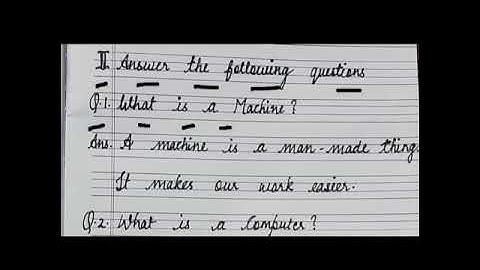 II Answer the following questions
Q.1. What is a Machine?
Ans. A machine is a man-made thing.
It makes our work easier.
Q.2. What is a Computer?